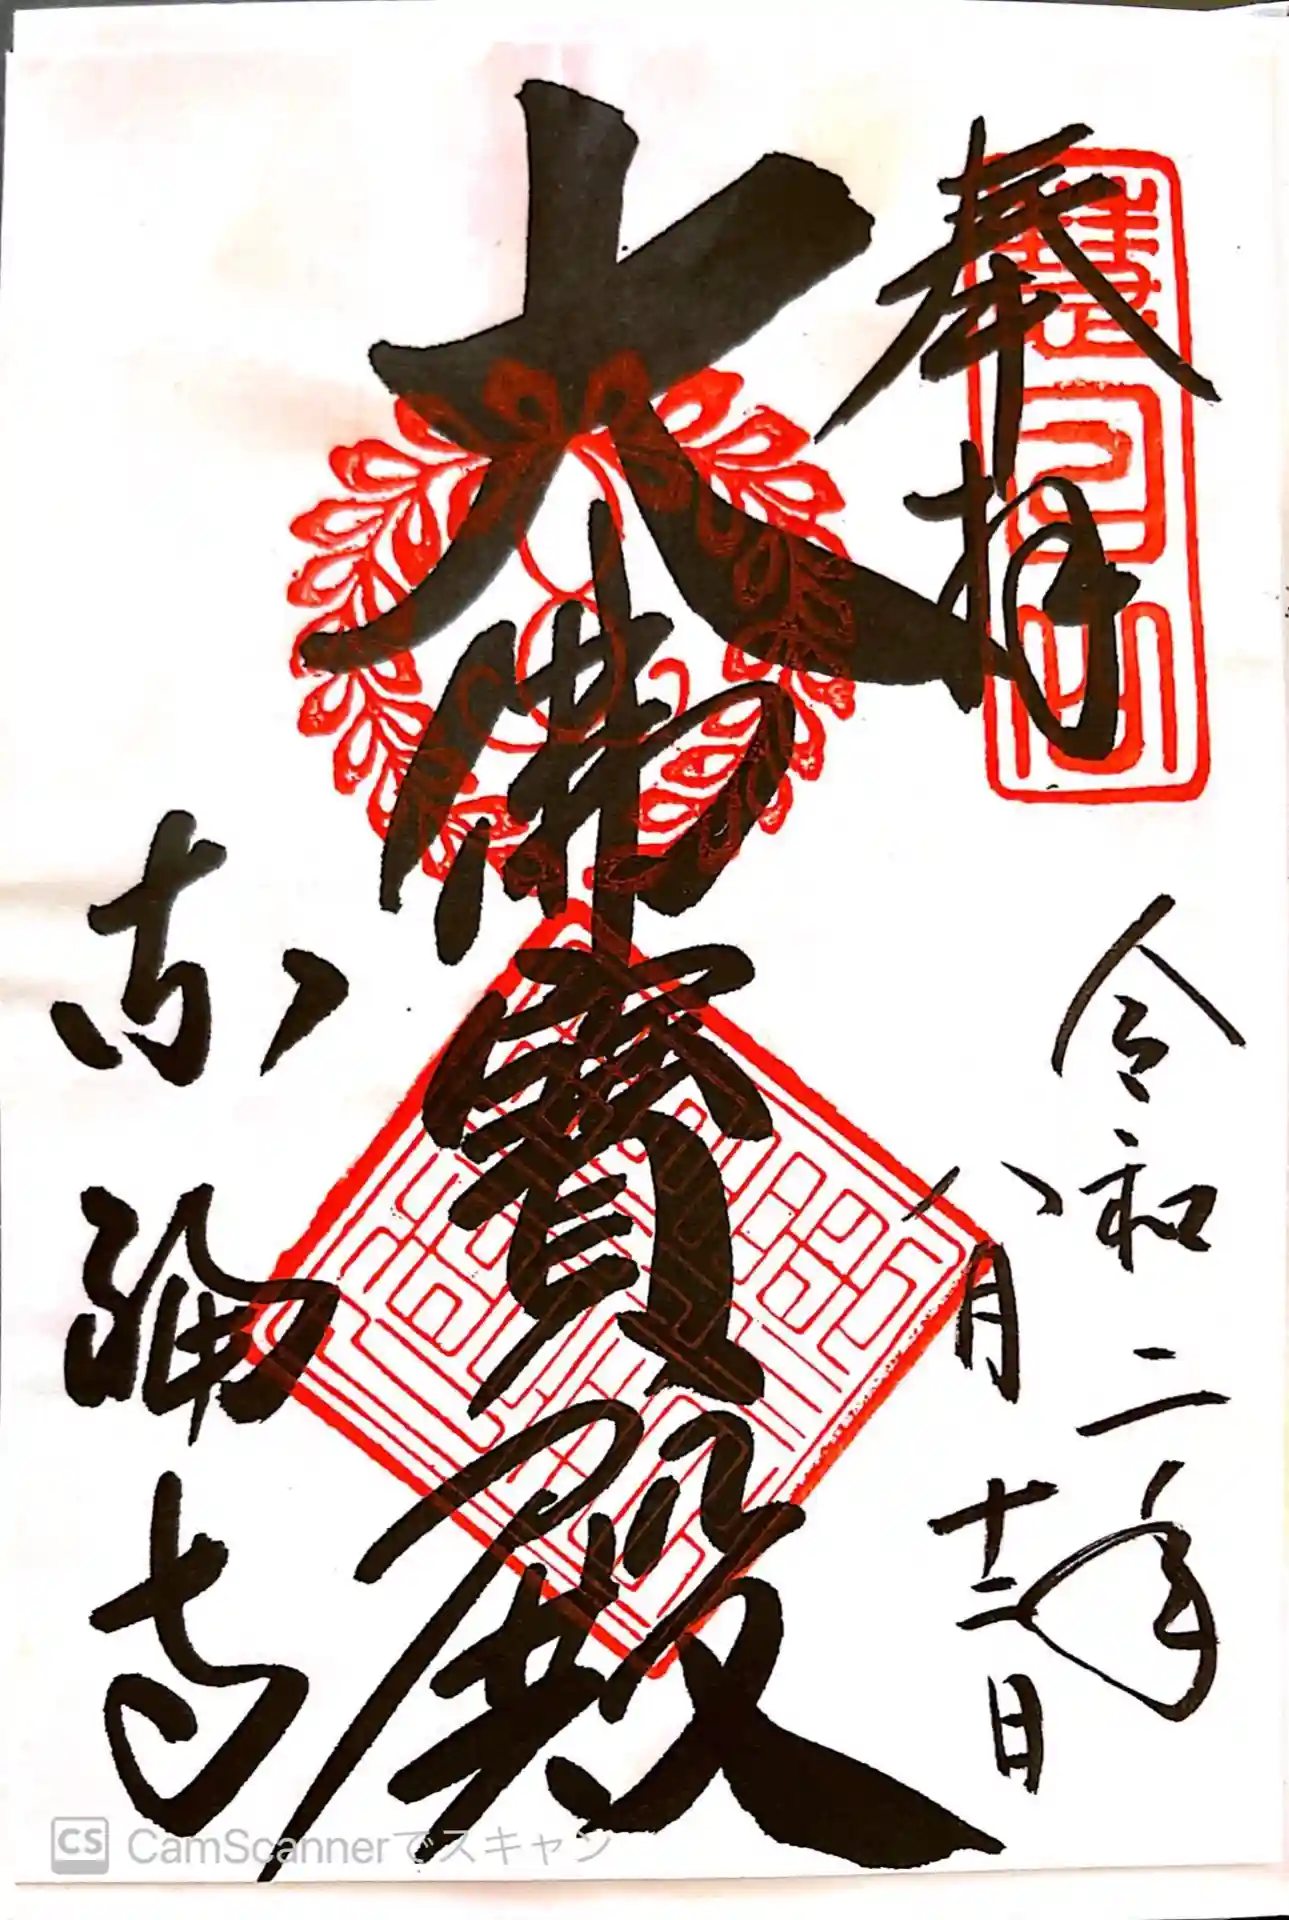 慧日山
奉拝
令和二年
八月十二日
大佛寳殿
東福寺
CS CamScannerでスキャン